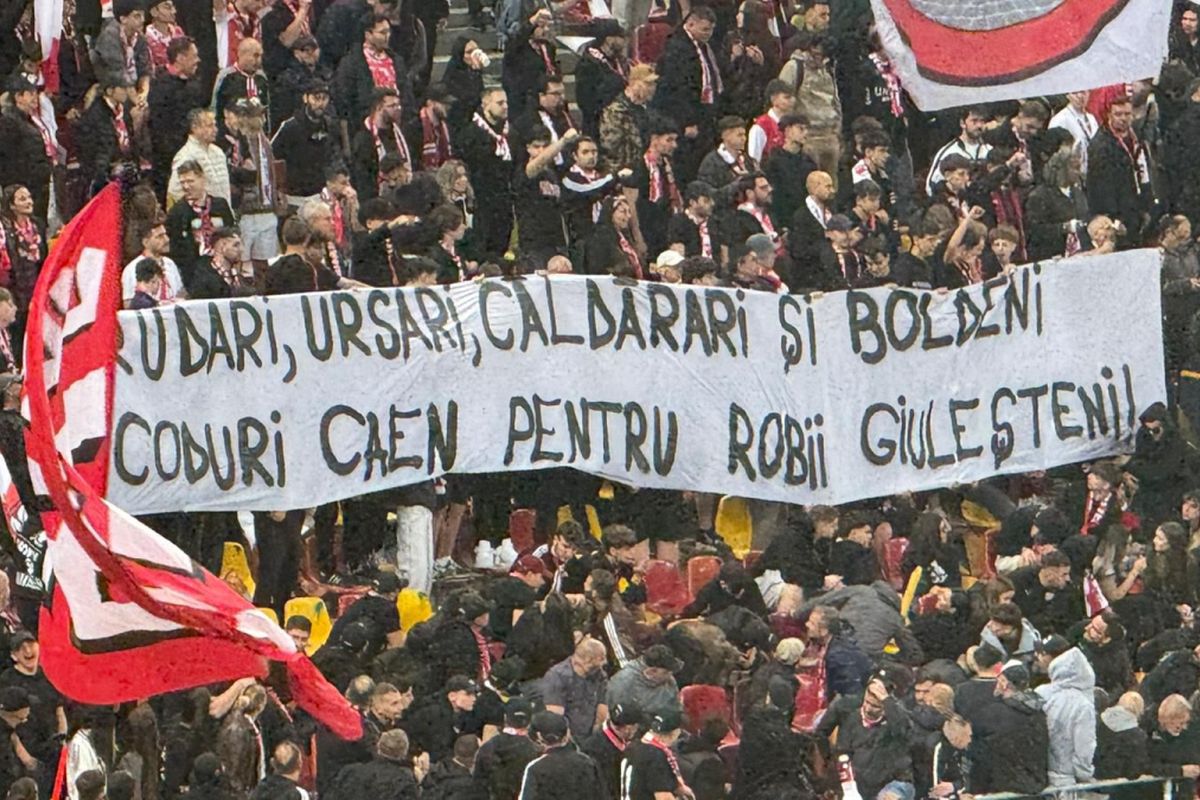 RUDARI, URSARI, CALDARARI ȘI BOLDENI
CODURI CAEN PENTRU ROBII GIULEȘTENI!